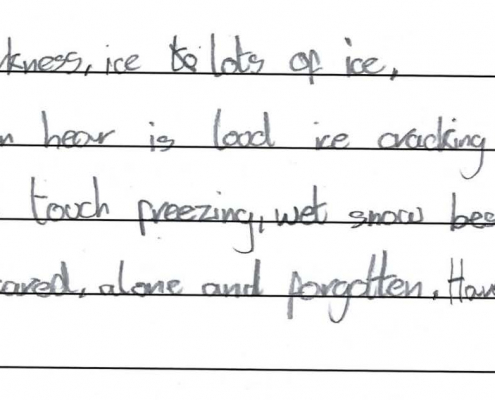 kness, ice to lots of ice,
n hear is load ice cracking
touch freezing, wet snow bes
cared, alone and forgotten. Hav